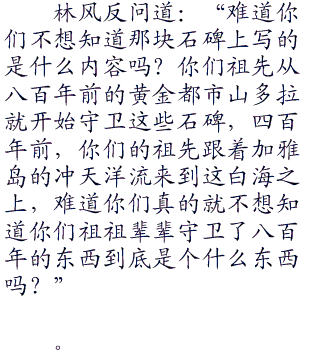 林风反问道：“难道你
们不想知道那块石碑上写的
是什么内容吗？你们祖先从
八百年前的黄金都市山多拉
就开始守卫这些石碑，四百
年前，你们的祖先跟着加雅
岛的冲天洋流来到这白海之
上，难道你们真的就不想知
道你们祖祖辈辈守卫了八百
年的东西到底是个什么东西
吗？”
。